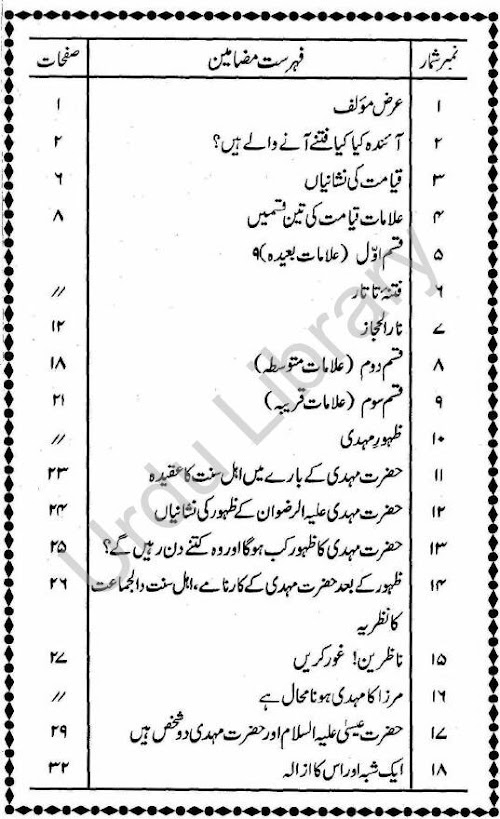 نمبر شمار فہرست مضامین صفحات
۱ عرض مؤلف ۱
۲ آئندہ کیا کیا فتنے آنے والے ہیں؟ ۲
۳ قیامت کی نشانیاں ۶
۴ علامات قیامت کی تین قسمیں ۸
۵ قسم اوّل (علامات بعیدہ) ۹
۶ فتنۂ تاتار //
۷ نار الحجاز ۱۲
۸ قسم دوم (علامات متوسطہ) ۱۸
۹ قسم سوم (علامات قریبہ) ۲۱
۱۰ ظہورِ مہدی //
۱۱ حضرت مہدی کے بارے میں اہل سنت کا عقیدہ ۲۳
۱۲ حضرت مہدی علیہ الرضوان کے ظہور کی نشانیاں ۲۴
۱۳ حضرت مہدی کا ظہور کب ہوگا اور وہ کتنے دن رہیں گے؟ ۲۵
۱۴ ظہور کے بعد حضرت مہدی کے کارنامے، اہل سنت والجماعت ۲۶
کا نظریہ
۱۵ ناظرین! غور کریں ۲۷
۱۶ مرزا کا مہدی ہونا محال ہے //
۱۷ حضرت عیسیٰ علیہ السلام اور حضرت مہدی دو شخص ہیں ۲۹
۱۸ ایک شبہ اور اس کا ازالہ ۳۲
Urdu Library